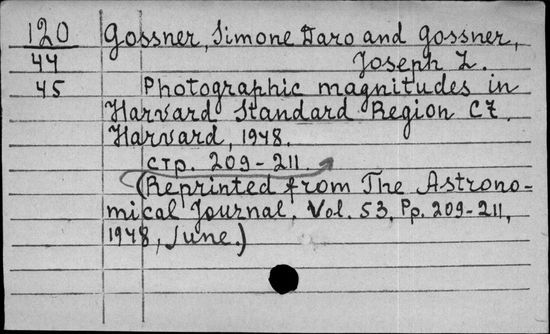 120
44
45
Gossner, Simone Daro and Gossner,
Joseph L.
Photographic magnitudes in
Harvard Standard Region C7.
Harvard, 1948.
стр. 209-211.
(Reprinted from The Astrono-
mical Journal, Vol. 53, Pp. 209-211,
1948, June.)